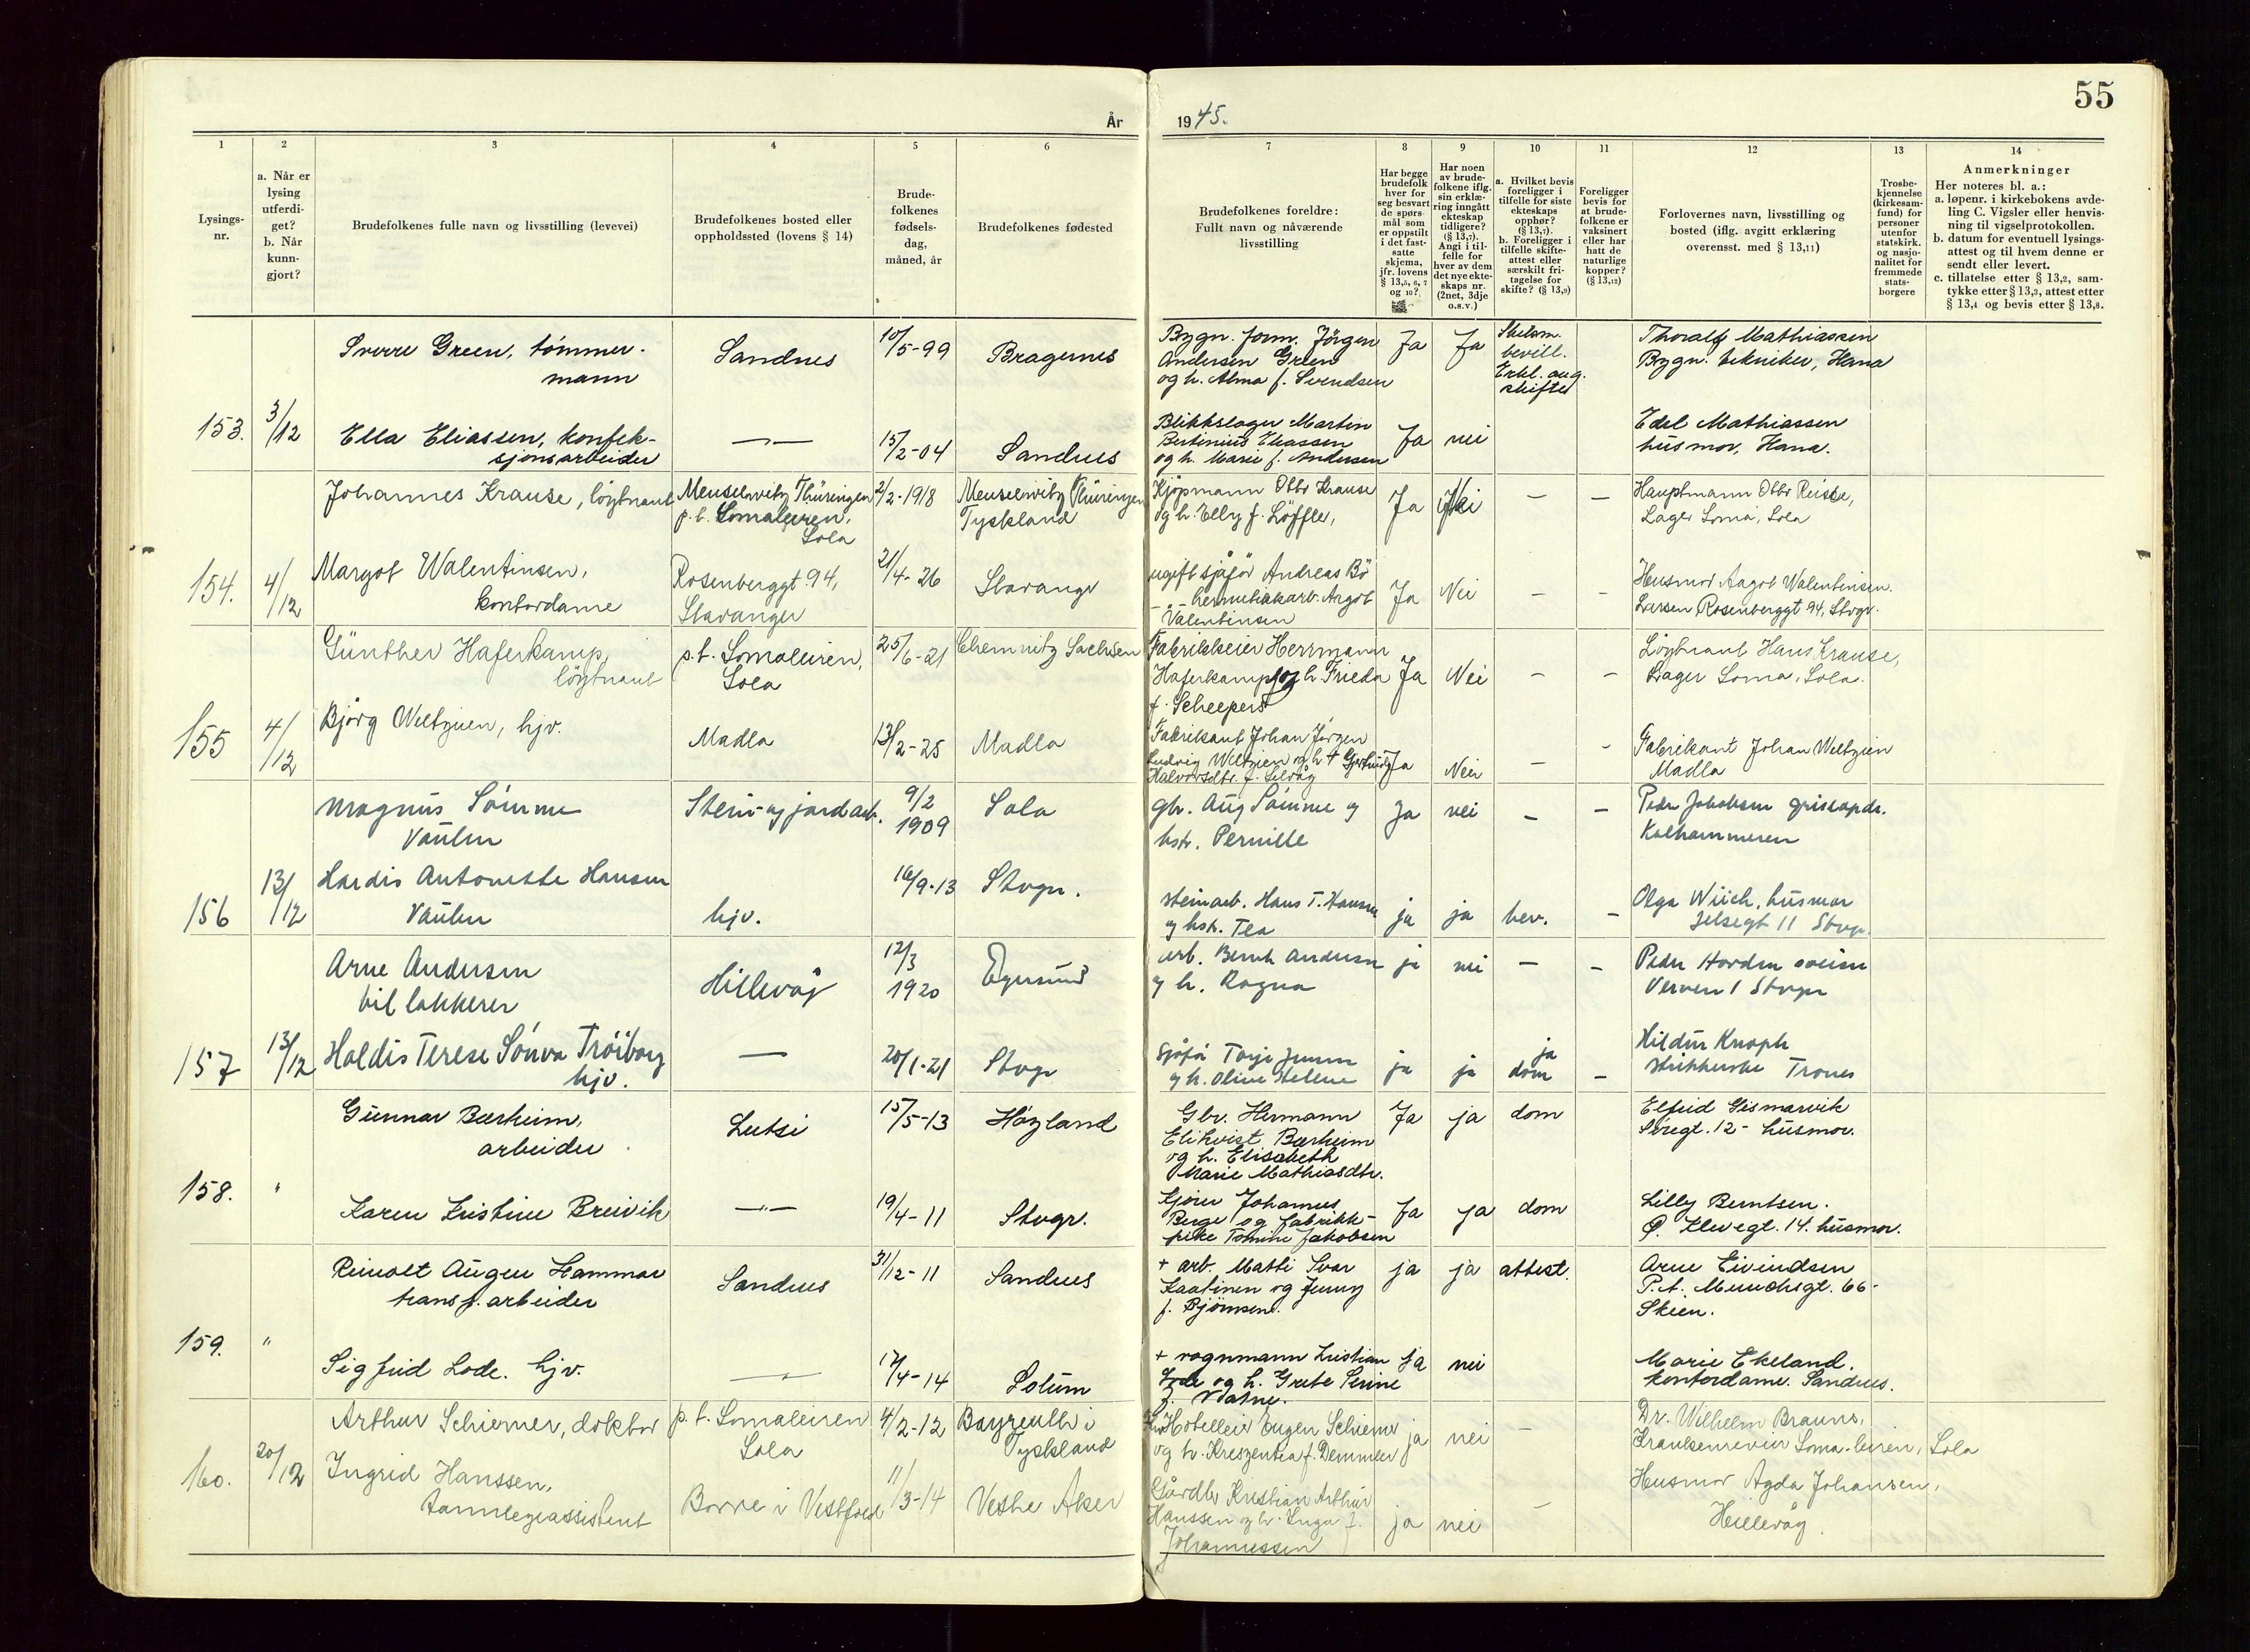 55
År
19 45.
1
2
3
4
5
6
7
8
9
10
11
12
13
14
Lysings-
nr.
a. Når er
lysing
utferdi-
get?
b. Når
kunn-
gjort?
Brudefolkenes fulle navn og livsstilling (levevei)
Brudefolkenes bosted eller
oppholdssted (lovens § 14)
Brude-
folkenes
fødsels-
dag,
måned, år
Brudefolkenes fødested
Brudefolkenes foreldre:
Fullt navn og nåværende
livsstilling
Har begge
brudefolk
hver for
seg besvart
de spørs-
mål som
er oppstilt
i det fast-
satte
skjema,
jfr. lovens
§ 13,5, 6, 7
og 10?
Har noen
av brude-
folkene iflg.
sin erklæ-
ring inngått
ekteskap
tidligere?
(§ 13,7).
Angi i til-
felle for
hver av dem
det nye ekte-
skaps nr.
(2net, 3dje
o.s.v.)
a. Hvilket bevis
foreligger i
tilfelle for siste
ekteskaps
opphør?
(§ 13,7).
b. Foreligger i
tilfelle skifte-
attest eller
særskilt fri-
tagelse for
skifte? (§ 13,9)
Foreligger
bevis for
at brude-
folkene er
vaksinert
eller har
hatt de
naturlige
kopper?
(§ 13,12)
Forlovernes navn, livsstilling og
bosted (iflg. avgitt erklæring
overensst. med § 13,11)
Trosbe-
kjennelse
(kirkesam-
fund) for
personer
utenfor
statskirk.
og nasjo-
nalitet for
fremmede
stats-
borgere
Anmerkninger
Her noteres bl. a.:
a. løpenr. i kirkebokens avde-
ling C. Vigsler eller henvis-
ning til vigselprotokollen.
b. datum for eventuell lysings-
attest og til hvem denne er
sendt eller levert.
c. tillatelse etter § 13,2, sam-
tykke etter § 13,3, attest etter
§ 13,4 og bevis etter § 13,8.
Sverre Green, tömmer-
mann
Sandnes
10/5-99
Bragernes
Bygn. form. Jörgen
Andersen Green
og h. Alma f. Svendsen
Ja
Ja
bevill.
Erkl. ang.
skifte
Thoralf Mathiassen
Bygn. tekniker, Hana
153.
3/12
Ella Eliassen, konfek-
sjonsarbeider
—"—
15/2-04
Sandnes
Blikkslager Martin
Bertinius Eliassen
og h. Marie f. Andersen
Ja
nei
Edel Mathiassen
husmor, Hana.
Johannes Krause, löytnant
Meuselwitz Thüringen
p.t. Somaleiren,
Sola
2/2-1918
Meuselwitz Thüringen
Tyskland
Kjöpmann Otto Krause
og h. Elly f. Löffler,
Ja
Nei
—
—
Hauptmann Otto
Lager Soma, Sola
154.
4/12
Margot Walentinsen,
kontordame
Rosenberggt. 94,
Stavanger
21/4-26
Stavanger
ugift sjåför Andreas Bö
-"- hermetikkarb. Aagot
Valentinsen
Ja
Nei
—
—
Husmor Aagot Walentinsen
Larsen Rosenberggt 94, Stvgr.
Günther Haferkamp,
löytnant
p.t. Somaleiren,
Sola
25/6-21
Chemnitz Sachsen
Fabrikkeier Herrmann
Haferkamp og h Frieda
f. Scheepers
Ja
Nei
—
—
Löytnant Hans Krause,
Lager Soma, Sola.
155
4/12
Björg Weltzien, hjv.
Madla
13/2-25
Madla
Fabrikant Johan Jörgen
Ludvig Weltzien og h +
Halvorsdtr. f. Selvåg
Ja
Nei
—
-
Fabrikant Johan Weltzien
Madla
Magnus Sömme
Vaulen
Stein- og jordarb.
9/2
1909
Sola
gbr. Aug Sömme og
hstr. Pernille
Ja
nei
—
—
Peder Jakobsen
Kalhammeren
156
13/12
Hardis Antonette Hansen
Vaulen
hjv.
16/9-13
Stvgr.
steinarb. Hans T. Hansen
og hstr. Tea
ja
ja
bev.
—
Olga Wiich, husmor
Jelsegt 11 Stvgr.
Arne Andersen
billakkerer
Hillevåg
12/3
1920
Egersund
arb. Bernh Andersen
og h. Ragna
ja
nei
—
—
Peder
Verven 1 Stvgr
157
13/12
Haldis Terese Sönva Tröiborg
hjv.
—
20/1-21
Stvgr
Sjåför Torje Jensen
og h. Olive Helene
ja
ja
ja
dom
—
Hildur Knoph
Trones
Gunnar Bærheim,
arbeider
Lutsi
15/5-13
Höyland
Gbr. Hermann
Elikvist Bærheim
og h. Elisabeth
Marie Mathiasdtr.
Ja
ja
dom
Elfrid Gismarvik
12- husmor.
158.
"
Karen Kristine Breivik
—"—
19/4-11
Stvgr.
Kjörer Johannes
Berge og fabrikk-
pike Tomine Jakobsen
Ja
ja
dom
Lilly Berntsen.
Ø. Klevegt. 14. husmor.
Reinolt Augen Hammar
transp. arbeider
Sandnes
31/12-11
Sandnes
+ arb. Matti Ivar
Kaatinen og Jenny
f. Björnsen.
ja
ja
attest.
Arne Eivindsen
P.t. Munchsgt. 66-
Skien.
159.
"
Sigfrid Lode. hjv.
—"—
17/4-14
Solum
+ vognmann Kristian
Lode og h. Grete Serine
f. Vatne.
ja
nei
Marie Ekeland.
kontordame. Sandnes.
Arthur Schierner, doktor
p.t. Somaleiren
Sola
4/2-12
Bayreuth i
Tyskland
Hotelleier Eugen Schierner
og h. Kreszentia f. Demmler
ja
nei
—
Dr. Wilhelm Brauns,
Krankenrevier Soma-leiren, Sola
160.
20/12
Ingrid Hanssen,
tannlegeassistent
Borre i Vestfold
11/3-14
Vestre Aker
Gårdbr Kristian Arthur
Hanssen og h. Inga f.
Johannessen
ja
nei
—
Husmor Agda Johansen,
Hillevåg.